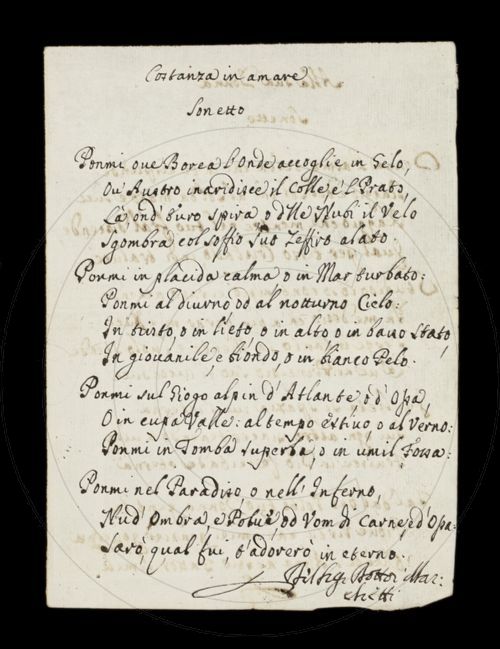 Costanza in amare
Sonetto
Ponmi ove Borea l'onde accoglie in Gelo,
Ov' Austro inaridisce il Colle e 'l Prato,
Là ond' Euro spira o dlle Nubi il Velo
Sgombra col soffio suo Zeffiro alato.
Ponmi in placida calma, o in Mar turbato:
Ponmi al diurno od al notturno Cielo:
In tristo, o in lieto, o in alto, o in basso stato,
In giovanile, e biondo, o in bianco Pelo.
Ponmi sul giogo alpin d'Atlante, o d'Ossa,
O in cupa Valle: al tempo estivo, o al Verno:
Ponmi in Tomba superba, o in umil Fossa:
Ponmi nel Paradiso, o nell' Inferno,
Nud' Ombra, e Polve, od Vom di Carne, ed' Ossa:
Sarò, qual fui, t'adorerò in eterno.
Del Sig. Dottor Mar:
chetti